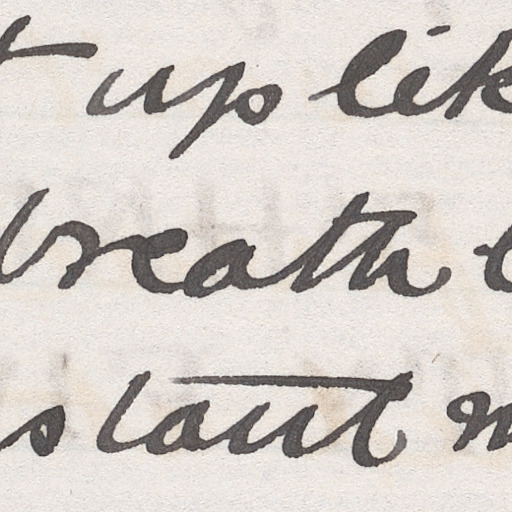 t up lik
breath
stant